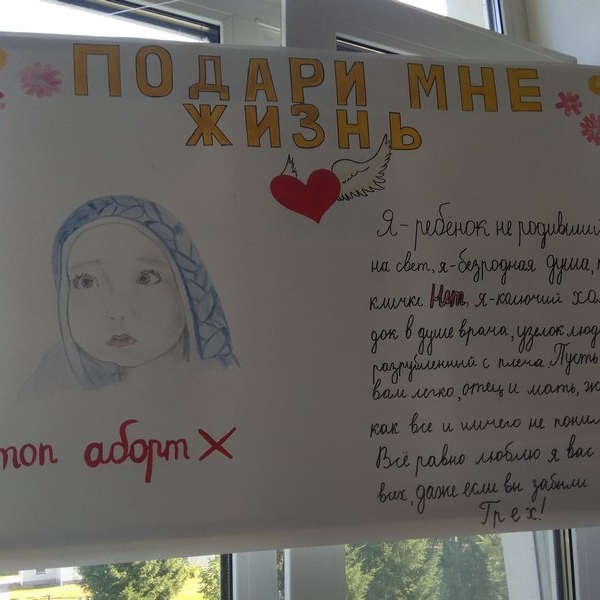 ПОДАРИ МНЕ
ЖИЗНЬ
Я-ребёнок не родивший
на свет, я-безродная душа,
кличке Нет, я-колючий
док в душе врача, узелок
разрубленный с плеча. Пусть
вам легко, отец и мать,
как все и ничего не
Всё равно люблю я вас
всех, даже если вы забыли
Грех!
аборт X